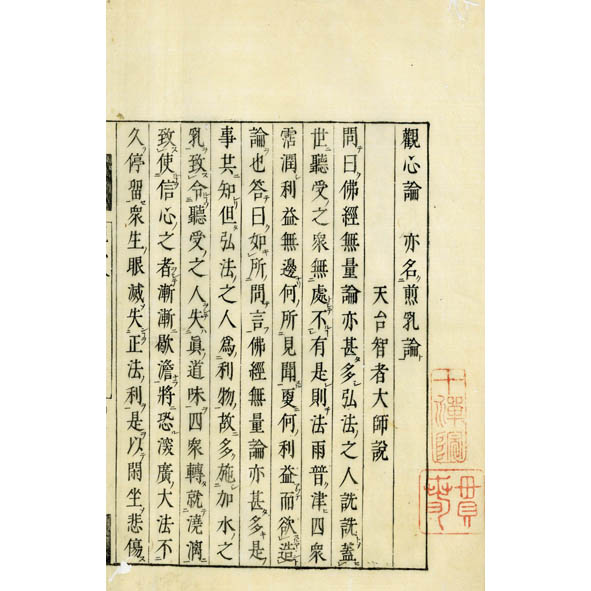 觀心論 亦名煎乳論
天台智者大師說
問曰佛經無量論亦甚多弘法之人詵詵蓋
世聽受之衆無處不有是則法雨普津四衆
霑潤利益無邊何所見聞更何利益而欲造
論也答曰如所問言佛經無量論亦甚多是
事共知但弘法之人爲利物故多施加水之
乳致令聽受之人失眞道味四衆轉就澆漓
致使信心之者漸漸歇澹將恐深廣大法不
久停留衆生眼滅失正法利是以閑坐悲傷